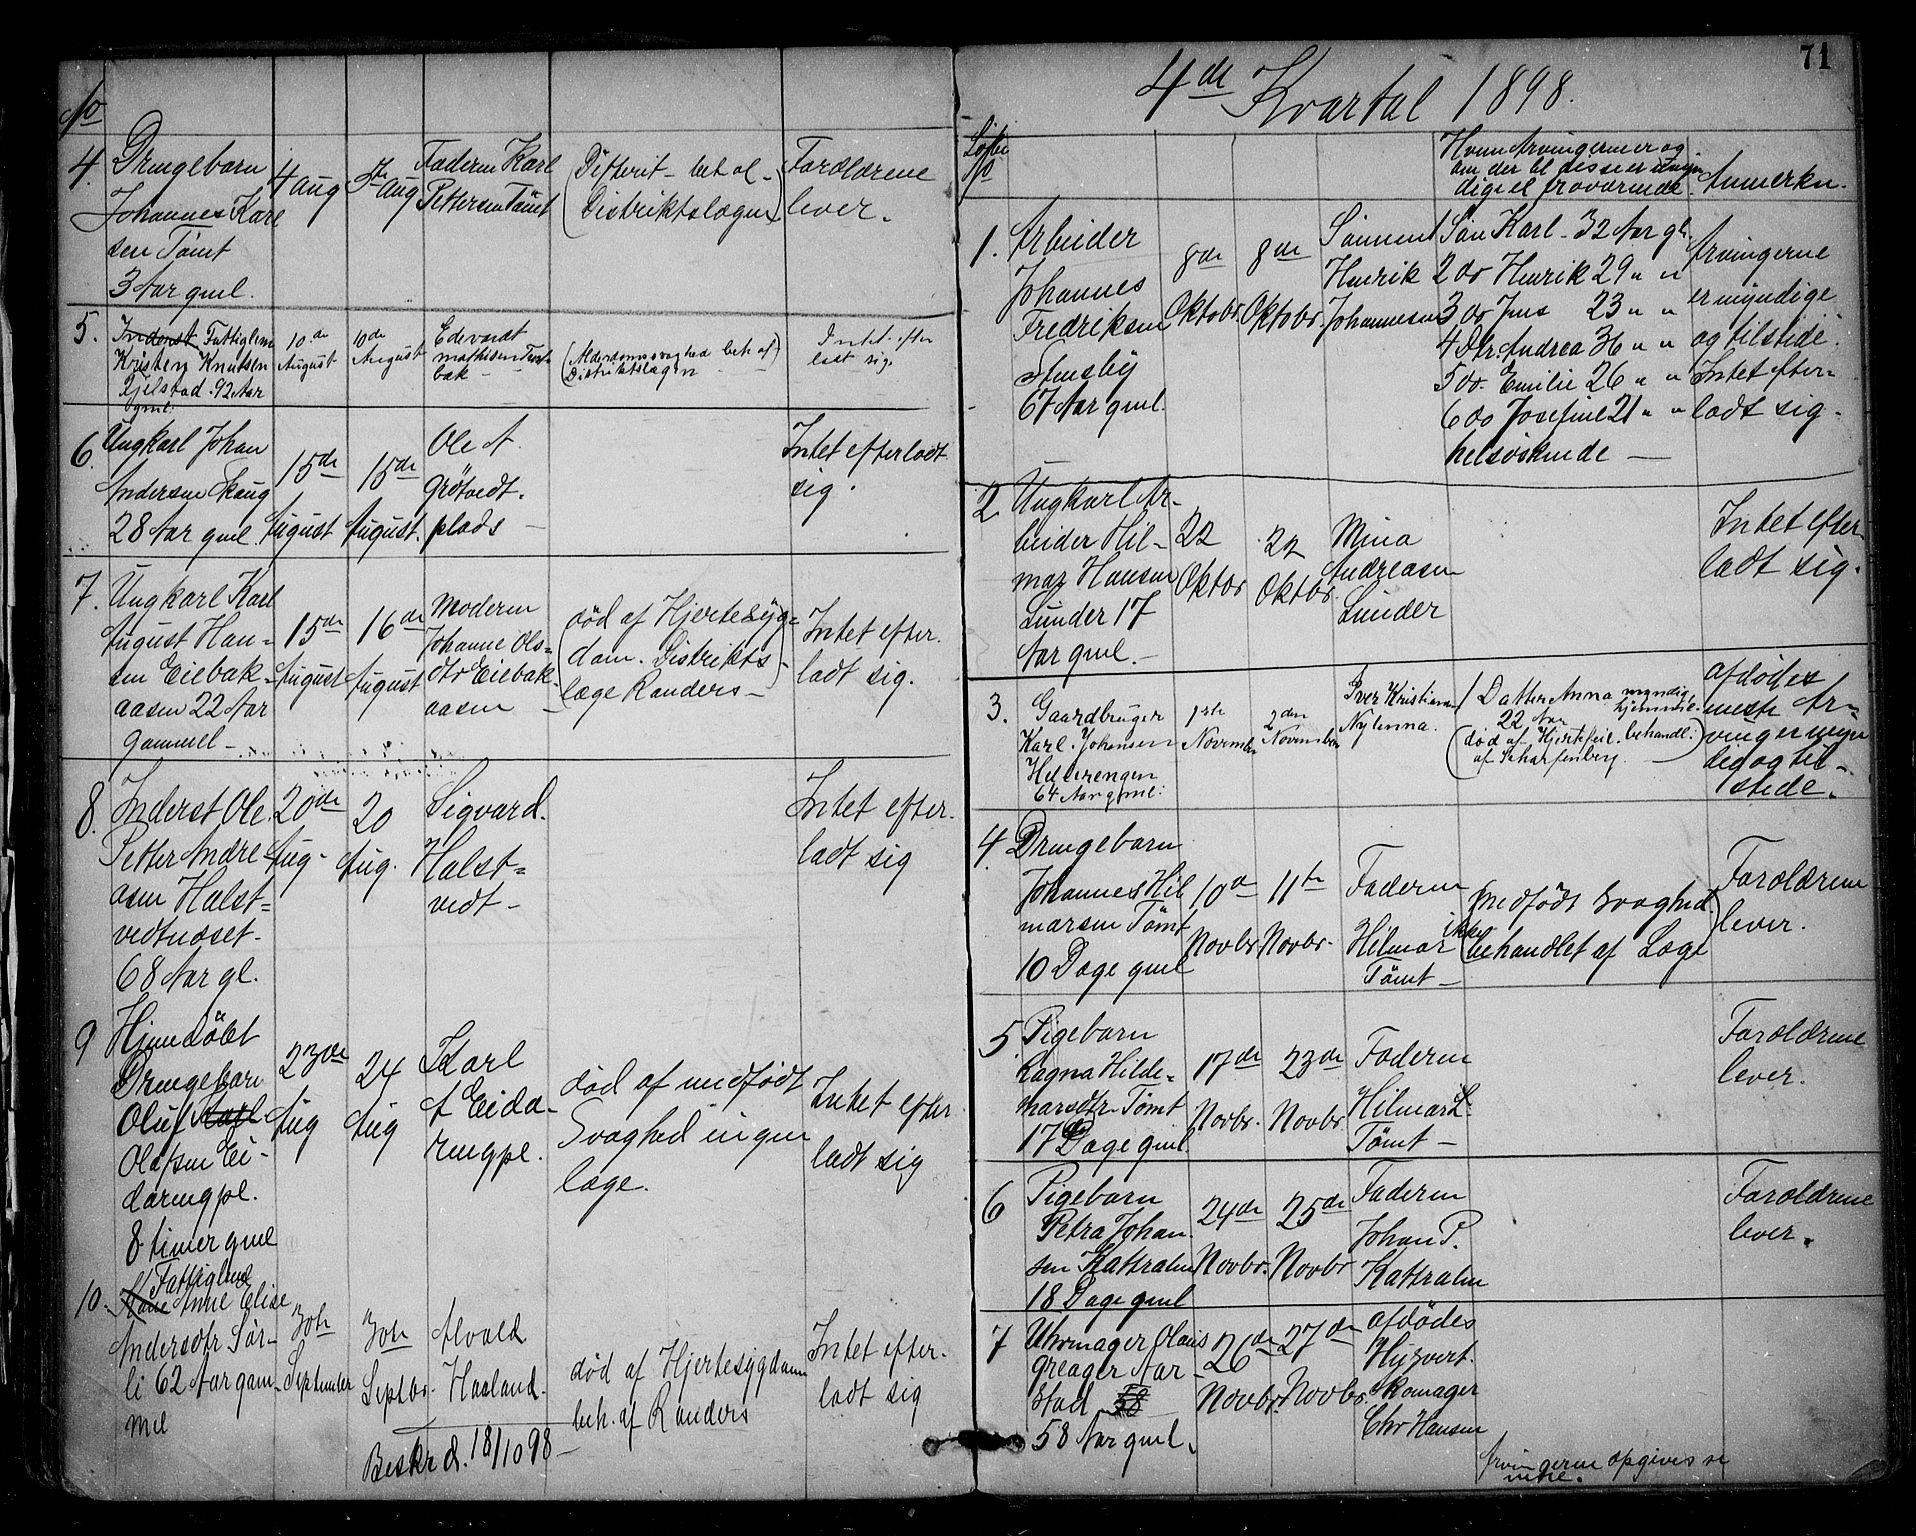 No
4. Drengebarn
Johannes Karl
sen Tømt
3 Aar gml.
4 Aug
5te Aug
Faderen Karl
Pettersen Tømt
(Difterit - beh af -
Distriktslægen)
Forældrene
lever.
5. Inderst Fattiglem
Kristen Knutsen
Gjelstad. 92 Aar
gml.
10de
August
10de
August
Edevardt
Mathisen
bak -
(Alderdomssvaghed beh af
Distriktslægen)
Intet efter
ladt sig.
6. Ungkarl Johan
Andersen Skaug
28 Aar gml.
15de
August
15de
August.
Ole A.
Grøtvedt.
plads -
Intet efterladt
sig.
7. Ungkarl Karl
August Han-
sen Eiebak-
aasen 22 Aar
gammel -
15de
August
16de
August
Moderen
Johanne Ols-
dtr Eiebak-
aasen -
(død af Hjertesyg-
dom. Distrikts-
læge Randers -)
Intet efter.
ladt sig.
8. Inderst Ole
Petter Andre-
asen Halst-
vedtnæset.
68 Aar gl.
20de
Aug-
20
Aug.
Sigvard.
Halst-
vedt -
Intet efter.
ladt sig
9 Hjemdøbt
Drengebarn
Oluf Karl
Olafsen Ei-
darengpl.
8 timer gml
23de
Aug
24
Aug
Karl
A Eida-
rengpl.
død af medfødt
Svaghed ingen
læge.
Intet efter
ladt sig
10. Fattiglem
Anne Elise
Andersdtr Sør-
li 62 Aar gam-
mel
30te
September
30te
Septbr.
Alvald
Haaland.
død af Hjertesygdom
beh. af Randers
Intet efter-
ladt sig
Beskr d. 18/10 98 -
71
4de Kvartal 1898.
Løbe
No
Hvem Arvingerne er og
om der bl disse er umyn
dige el fraværende.
Anmerkn.
1. Arbeider
Johannes
Fredriksen
Stensby
67 Aar gml.
8de
Oktobr.
8de
Oktobr.
Sønnen
Henrik
Johannesen
1 Søn Karl - 32 Aar gl.
2 do Henrik 29 " "
3 do Jens 23 " "
4 Dtr. Andrea 36 " "
5 do. Emilie 26 " "
6 do Josefine 21 " "
helsøskende -
Arvingerne
er myndige
og tilstede.
Intet efter-
ladt sig.
2 Ungkarl Ar-
beider Hil-
mar Hansen
Lunder 17
Aar gml. -
22
Oktbr
22
Oktbr.
Mina
Andreasen
Lunder
Intet efter-
ladt sig.
3. Gaardbruger
Karl. Johansen
Hellerengen
64 Aar gml:
1ste
November
2den
November
Iver Kristiansen
Nylenna.
1 Datter Anna myndig
22 Aar hjemme.
(død af Hjertefeil. behandl:
af Scharfenberg. -)
afdødes
neste Ar-
vinger myn
dig og til-
stede.
4. Drengebarn
Johannes Hil
marsen Tømt
10 Dage gml
10de
Novbr.
11te
Novbr.
Faderen
Hilmar
Tømt -
(medfødt Svaghed)
ikke
behandlet af Læge
Forældrene
lever.
5. Pigebarn
Ragna Hilde-
marsdtr. Tømt
17 Dage gml
17de
Novbr.
23de
Novbr
Faderen
Hilmar L.
Tømt -
Forældrene
lever.
6 Pigebarn
Petra Johan
sen Kattralen
18 Dage gml
24de
Novbr.
25de
Novbr
Faderen
Johan P.
Kattralen
Forældrene
lever.
7 Uhrmager Olaus
Greager Aar-
stad 58
58 Aar gml.
26de
Novbr.
27de
Novbr.
afdødes
Husvert.
Skomager
Chr Hansen
Arvingerne opgives se